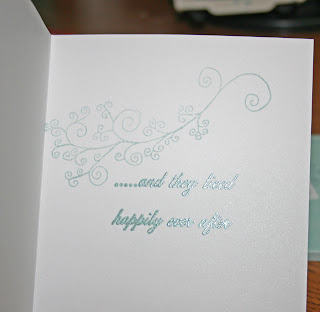 .....and they lived
happily ever after